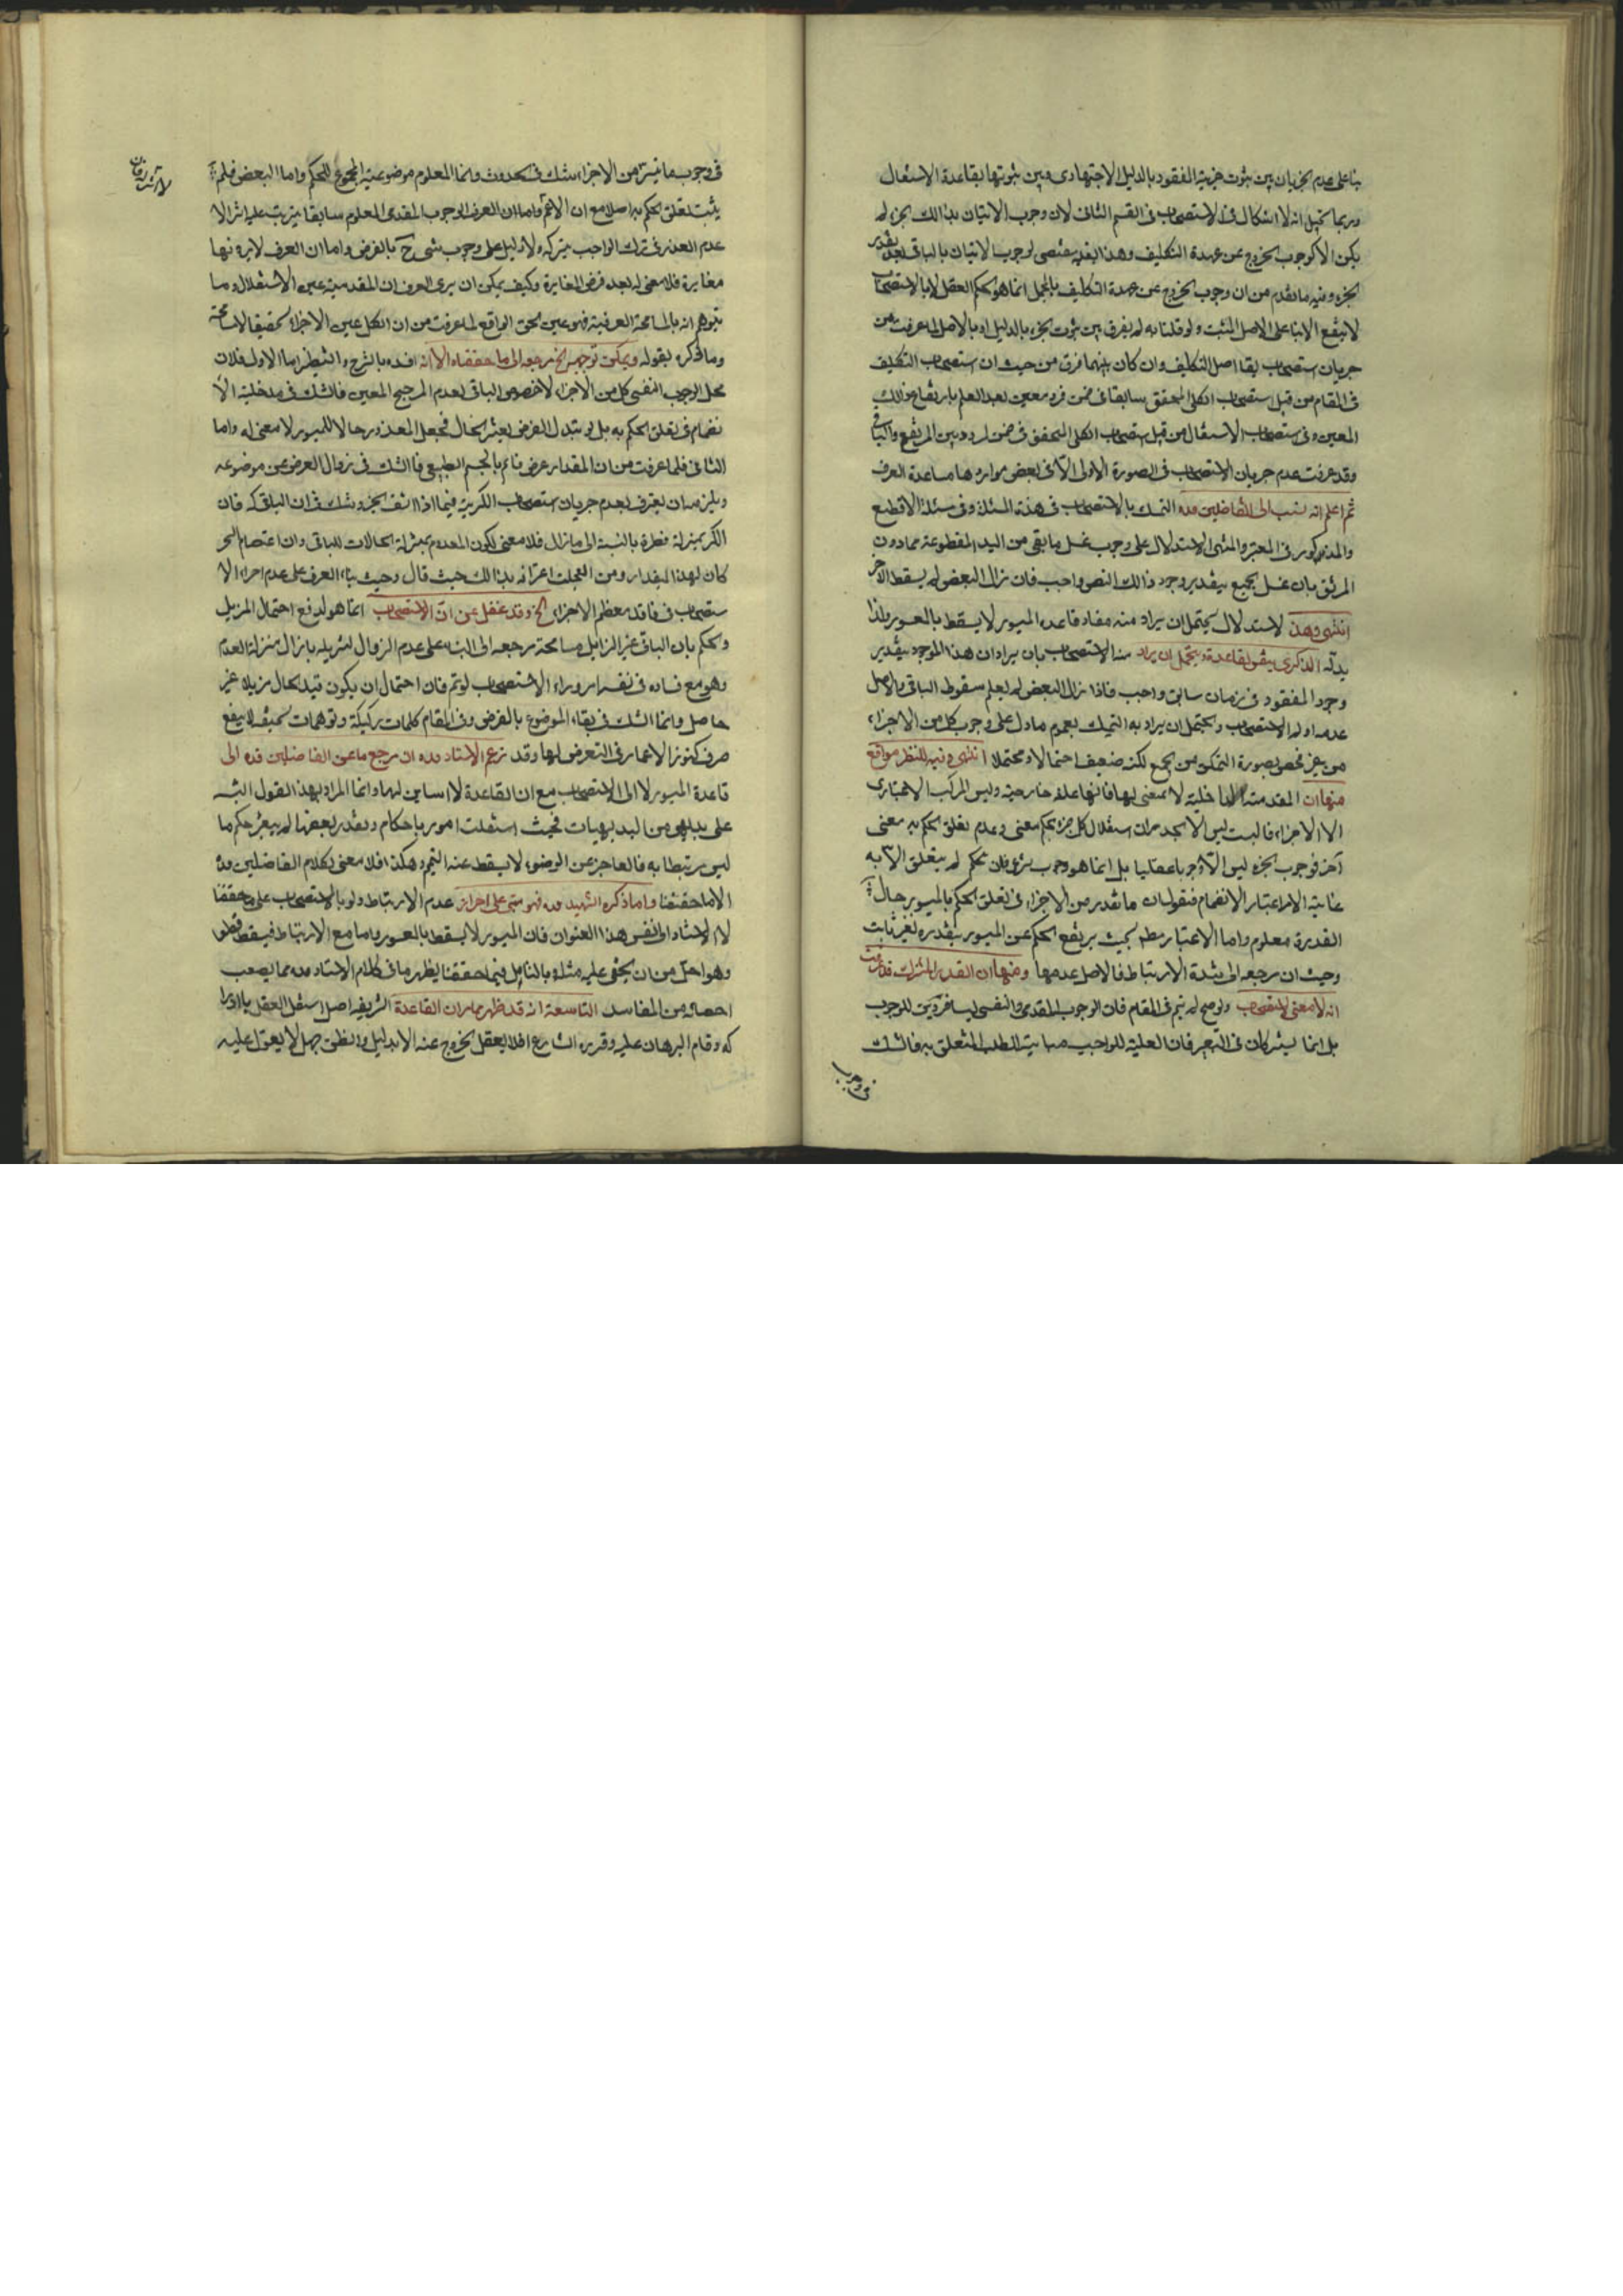 بناء على عدم الجريان بين ثبوت جزئية المفقود بالدليل الاجتهادى وبين ثبوتها بقاعدة الاشتغال
وربما يخيل انه لا اشكال فى الاستصحاب فى القسم الثانى لان وجوب الاتيان بذالك الجزء لم
يكن الا لوجوب الخروج عن عهدة التكليف وهذا بعينه يقتضى لوجوب الاتيان بالباقى بعد تعذر
الجزء وفيه ما تقدم من ان وجوب الخروج عن عهدة التكليف بالمجمل انما هو بحكم العقل لا بالاستصحاب
لا ينفع الا بناء على الاصل المثبت ولو قلنا به لم يفرق بين ثبوت الجزء بالدليل او بالاصل لما عرفت من
جريان استصحاب بقاء اصل التكليف وان كان بينهما فرق من حيث ان استصحاب التكليف
فى المقام من قبيل استصحاب الكلى المتحقق سابقا فى ضمن فرد معين بعد العلم بارتفاع ذالك
المعين وفى استصحاب الاشتغال من قبيل استصحاب الكلى المتحقق فى ضمن المردد بين المرتفع والباقى
وقد عرفت عدم جريان الاستصحاب فى الصورة الاولى الا فى بعض مواردها مساعدة العرف
ثم اعلم انه نسب الى الفاضلين قده التمسك بالاستصحاب فى هذه المسئلة وفى مسئلة الاقطع
والمذكور فى المعتبر والمنتهى الاستدلال على وجوب غسل ما بقى من اليد المقطوعة مما دون
المرفق بان غسل الجميع بتقدير وجود ذالك النص واجب فان زال البعض لم يسقط الاخر
انتهى وهذا الاستدلال يحتمل ان يراد منه مفاد قاعدة الميسور لا يسقط بالمعسور ولذا
ابدله الذكرى بنفس القاعدة ويحتمل ان يراد منه الاستصحاب بان يراد ان هذا الموجود بتقدير
وجود المفقود فى زمان سابق واجب فاذا زال البعض لم يعلم سقوط الباقى والاصل
عدمه او لم الاستصحاب ويحتمل ان يراد به التمسك بعموم ما دل على وجوب كل من الاجزاء
من غير مخصص بصورة التمكن من الجميع لكنه ضعيف احتمالا ومحتملا انتهى وفيه للنظر مواقع
منها ان المقدمة الداخلية لا معنى لها فانها علة خارجية وليس المركب الاعتبارى
الا الاجزاء
غاية الامر اعتبار الانضمام فنقول ان ما تعذر من الاجزاء فى تعلق الحكم بالميسور حال
القدرة معلوم واما الاعتبار مطم بحيث يرتفع الحكم عن الميسور بتعذره فغير ثابت
وحيث ان مرجعه الى شدة الارتباط فالاصل عدمها ومنها ان القدر المشترك قد عرفت
انه لا معنى لاستصحاب ولو صح لم يتم فى المقام فان الوجوب المقدمى والنفسى ليسا فردين للوجوب
بل انما يشتركان فى التعبير فان العلية للواجب مباينة للطلب المتعلق به فالشك
فى وجوب
فى وجوب ما تيسر من الاجزاء شك فى الحدوث وانما المعلوم موضوعية المجموع للحكم واما البعض فلم
يثبت تعلق الحكم به اصلا مع ان
عدم العذر فى ترك الواجب بتركه ولا دليل على وجوب شىء ح بالفرض واما ان العرف لا يرونها
مغايرة فلا معنى له بعد فرض المغايرة وكيف يمكن ان يرى العرف ان المقدمية عين الاستقلال وما
يتوهم انه بالمسامحة العرفية فهو عين الحق الواقع لما عرفت من ان الكل عين الاجزاء تحقيقا لا مسامحة
وما ذكره بقوله ويمكن توجيه الخ مرجعه الى ما حققناه الا انه افسده بالشرح والتنظير اما الاول فلان
محل الوجوب النفسى كل من الاجزاء لا خصوص الباقى لعدم المرجح المعين فالشك فى مدخلية الا
نضمام فى تعلق الحكم به بل لو تبدل الفرض بعينه الحال فجعل المعذور حالا للميسور لا معنى له واما
الثانى فلما عرفت من ان المقدار عرض قائم بالجسم الطبيعى فالشك فى زوال العرض عن موضوعه
ويلزمه ان يعترف بعدم جريان استصحاب الكرية فيما اذا
الكر بمنزلة قطرة بالنسبة الى ما زال فلا معنى لكون المعدوم بمنزلة الحالات للباقى وان اعتصام البحر
كان لهذا المقدار ومن العجائب اعترافه بذالك حيث قال وحيث بناء العرف على عدم اجراء الا
ستصحاب فى فاقد معظم الاجزاء الخ وقد غفل عن ان الاستصحاب انما هو لدفع احتمال المزيل
والحكم بان الباقى غير الزايل مسامحة مرجعه الى البناء على عدم الزوال لتنزيله ما زال منزلة العدم
وهو مع فساده فى نفسه امر وراء الاستصحاب لو تم فان احتمال ان يكون قيد الحال مزيلا غير
حاصل وانما الشك فى بقاء الموضوع بالفرض وفى المقام كلمات ركيكة وتوهمات سخيفة لا ينفع
صرف كنوز الاعمار فى التعرض لها وقد زعم الاستاد قده ان مرجع ما عن الفاضلين قده الى
قاعدة الميسور لا الى الاستصحاب مع ان القاعدة لا اساس لها وانما المراد بهذا القول التنبيه
على بديهى من البديهيات فحيث استقلت امور باحكام وتعذر بعضها لم يتغير حكم ما
ليس مرتبطا به فالعاجز عن الوضوء لا يسقط عنه التيمم وهكذا فلا معنى لكلام الفاضلين قده
الا ما حققنا واما ذكره الشهيد قده فهو مبنى على احراز عدم الارتباط ولو بالاستصحاب على ما حققنا
لا الاستناد الى نفس هذا العنوان فان الميسور لا يسقط بالمعسور واما مع الارتباط فيسقط قطعا
وهو اجل من ان يخفى عليه مثله وبالتامل فيما حققنا يظهر ما فى كلام الاستاد قده مما يصعب
احصائه من المفاسد التاسعة انه قد ظهر مما مر ان القاعدة الشريفة اصل استقل العقل بادرا
كه وقام البرهان عليه وقرره الشارع فلا يعقل الخروج عنه الا بدليل والظن جهل لا يعول عليه